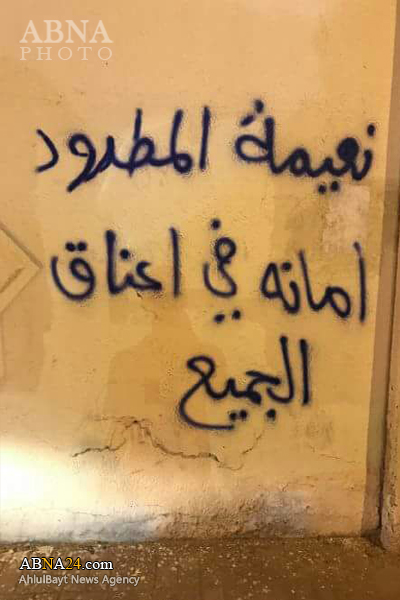 ABNA
PHOTO
نعيمة المطرود
امانه في اعناق
الجميع
ABNA24.com
AhlulBayt News Agency